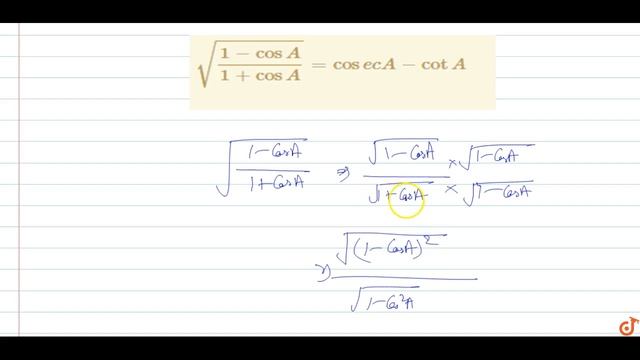 √((1 − cos A)/(1 + cos A)) = cos ecA − cot A
√((1−CosA)/(1+CosA)) ⇒ √(1−CosA)/√(1+CosA) × √(1−CosA)/√(1−CosA)
⇒ √((1−CosA)²)/√(1−Cos²A)